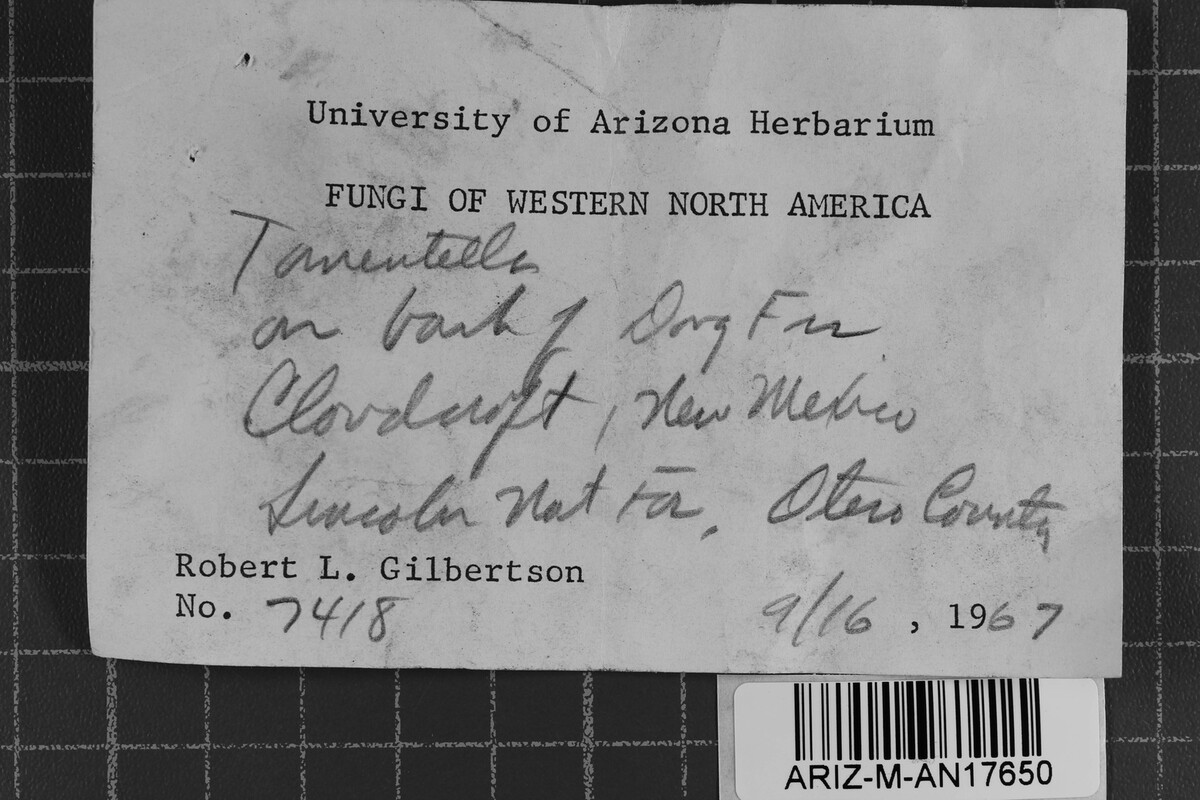 University of Arizona Herbarium
FUNGI OF WESTERN NORTH AMERICA
Tomentella
on bark of Doug Fir
Cloudcroft, New Mexico
Lincoln Nat For. Otero County
Robert L. Gilbertson
No. 7418
9/16, 1967
ARIZ-M-AN17650